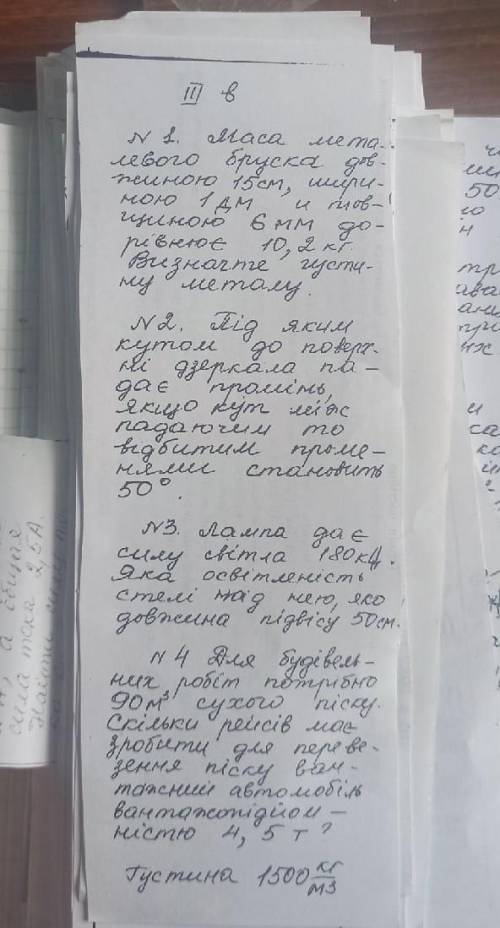 II в
N 1. Маса мета-
левого бруска дов-
жиною 15см, шири-
ною 1 дм и тов-
щиною 6 мм до-
рівнює 10,2 кг.
Визначте густи-
ну металу.
N2. Під яким
кутом до поверх-
ні дзеркала па-
дає промінь,
якщо кут між
падаючим то
відбитим проме-
нями становить
50°.
N3. Лампа дає
силу світла 180 кд.
Яка освітленість
стелі над нею, яко
довжина підвісу 50см.
N 4 Для будівель-
них робіт потрібно
90м³ сухого піску.
Скільки рейсів має
зробити для переве-
зення піску ван-
тажний автомобіль
вантажопідйом-
ністю 4,5 т?
Густина 1500 кг/м3
сила тока 2,5А.
Найти